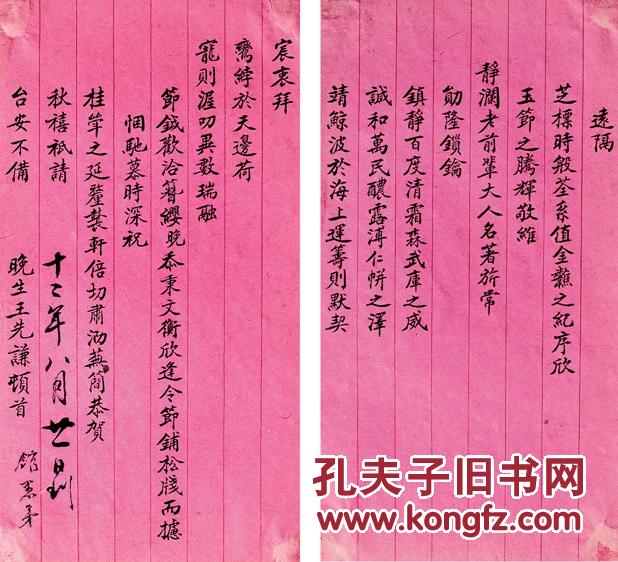 遠隔
芝標時殷荃系值金飈之紀序欣
玉節之騰輝敬維
靜瀾老前輩大人名著旂常
勛隆鎖鑰
鎮靜百度清霜森武庫之威
諴和萬民醲露溥仁帡之澤
靖鯨波於海上運籌則默契
宸衷拜
鸞綍於天邊荷
寵則渥叨異數瑞融
節鉞歡洽簪纓晚忝秉文衡欣逢令節鋪松牋而攄
悃馳慕時深祝
桂之延釐軒倍切肅泐蕪簡恭賀
秋禧祗請
十二年八月廿日到
台安不備 晚生王先謙頓首
孔夫子旧书网
www.kongfz.com